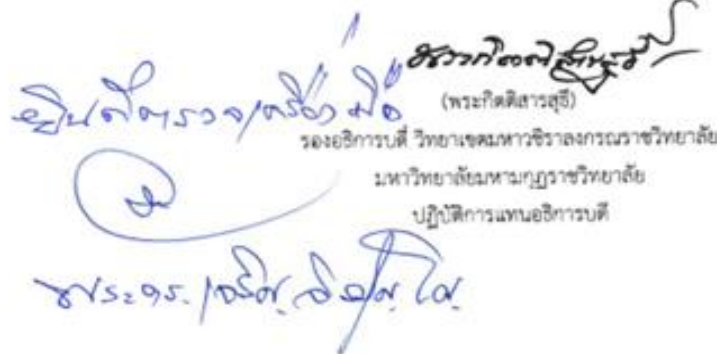 ยินดีตรวจเครื่องมือ
(พระกิตติสารสุธี)
รองอธิการบดี วิทยาเขตมหาวชิราลงกรณราชวิทยาลัย
มหาวิทยาลัยมหามกุฏราชวิทยาลัย
ปฏิบัติการแทนอธิการบดี
พระดร.